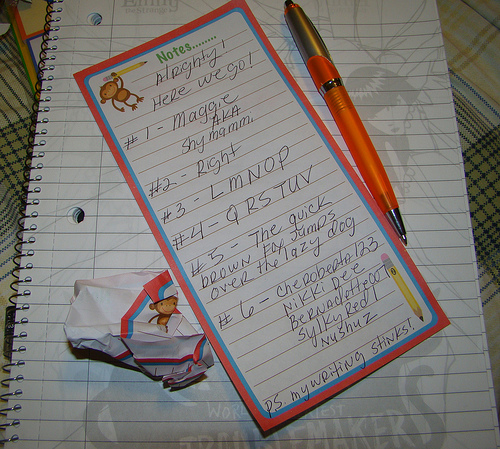 Notes........
Alrighty!
Here we go!
#1 - Maggie
AKA
Shymamm.
#2 - Right
#3 - LMNOP
#4 - QRSTUV
#5 - The quick
brown fox jumps
over the lazy dog
#6 - Cheroberta123
Nikki Dee
Bernadette007
SylkyRed1
Nushuz
P.S. my writing stinks!